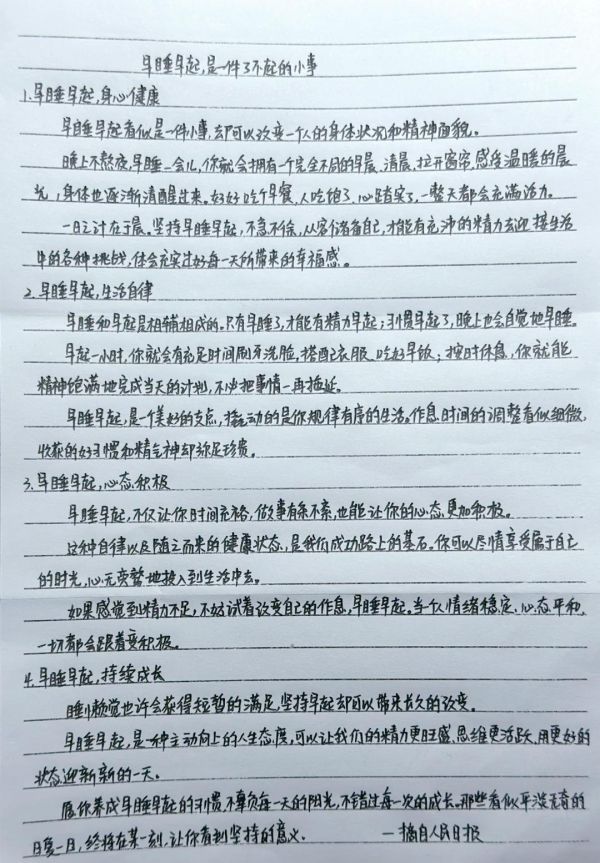 早睡早起,是一件了不起的小事
1.早睡早起,身心健康
早睡早起看似是一件小事,却可以改变一个人的身体状况和精神面貌。
晚上不熬夜,早睡一会儿,你就会拥有一个完全不同的早晨。清晨,拉开窗帘,感受温暖的晨
光,身体也逐渐清醒过来。好好吃个早餐,人吃饱了,心踏实了,一整天都会充满活力。
一日之计在于晨。坚持早睡早起,不急不徐,从容储备自己,才能有充沛的精力去迎接生活
中的各种挑战,体会充实过好每一天所带来的幸福感。
2.早睡早起,生活自律
早睡和早起是相辅相成的。只有早睡了,才能有精力早起;习惯早起了,晚上也会自觉地早睡。
早起一小时,你就会有充足时间刷牙洗脸,搭配衣服,吃好早饭;按时休息,你就能
精神饱满地完成当天的计划,不必把事情一再拖延。
早睡早起,是一个美好的支点,撬动的是你规律有序的生活。作息时间的调整看似细微,
收获的好习惯和精气神却弥足珍贵。
3.早睡早起,心态积极
早睡早起,不仅让你时间充裕,做事有条不紊,也能让你的心态更加积极。
这种自律以及随之而来的健康状态,是我们成功路上的基石。你可以尽情享受属于自己
的时光,心无旁骛地投入到生活中去。
如果感觉到精力不足,不妨试着改变自己的作息,早睡早起。当个人情绪稳定、心态平和,
一切都会跟着变积极。
4.早睡早起,持续成长
睡懒觉也许会获得短暂的满足,坚持早起却可以带来长久的改变。
早睡早起,是一种主动向上的人生态度,可以让我们的精力更旺盛,思维更活跃,用更好的
状态迎新新的一天。
愿你养成早睡早起的习惯,不辜负每一天的阳光,不错过每一次的成长。那些看似平淡无奇的
日复一日,终将在某一刻,让你看到坚持的意义。 —摘自人民日报